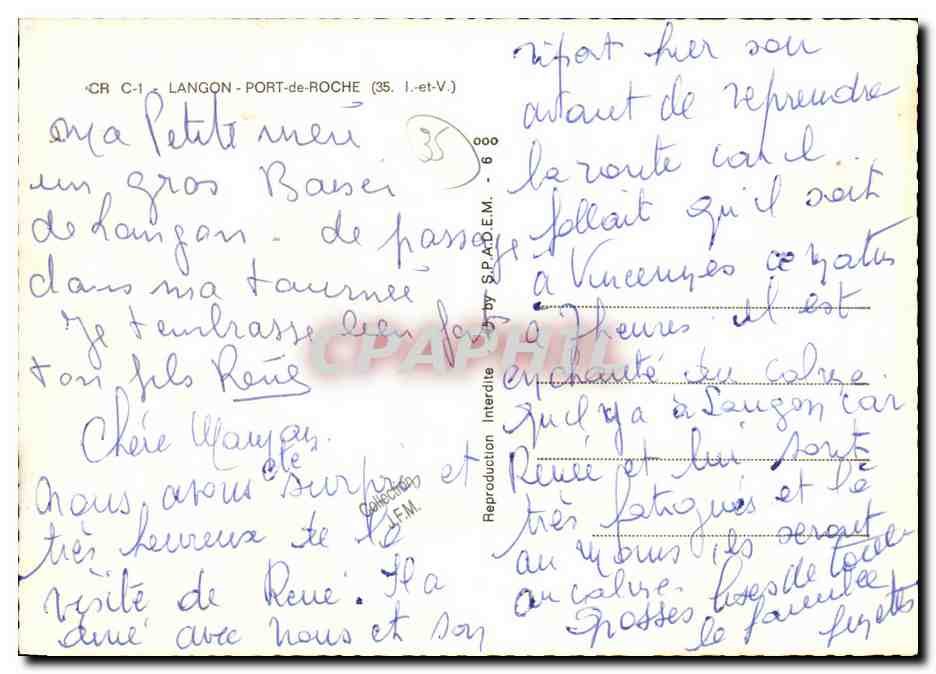 CR C-1 - LANGON - PORT-de-ROCHE (35. I.-et-V.)
ma Petite mère
un gros Baiser
de Langon - de passage
dans ma tournée
Je t'embrasse bien fort
ton fils René
Chère Maman.
nous avons été surpris et
très heureux de la
visite de René. Il a
diné avec nous et son
35
Reproduction Interdite by S.P.A.D.E.M. - 6 ooo
Collection
J.F.M.
CPAPHIL
ripart hier soir
avant de reprendre
la route car il
fallait qu'il soit
à Vincennes ce matin
à 7 heures. il est
enchanté du calme
qu'il y a à Langon car
Renée et lui sont
très fatigués et là
au moins ils seront
au calme.
Grosses bises de toute
la famille